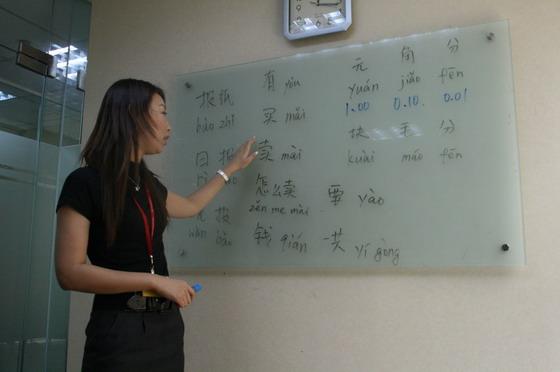 有 yǒu 元 角 分
报纸 yuán jiǎo fēn
bào zhǐ 买 mǎi 1.00 0.10. 0.01
块 毛 分
日报 卖 mài kuài máo fēn
怎么卖 要 yào
报 zěn me mài
wǎn bào 钱 qián 一共 yí gòng